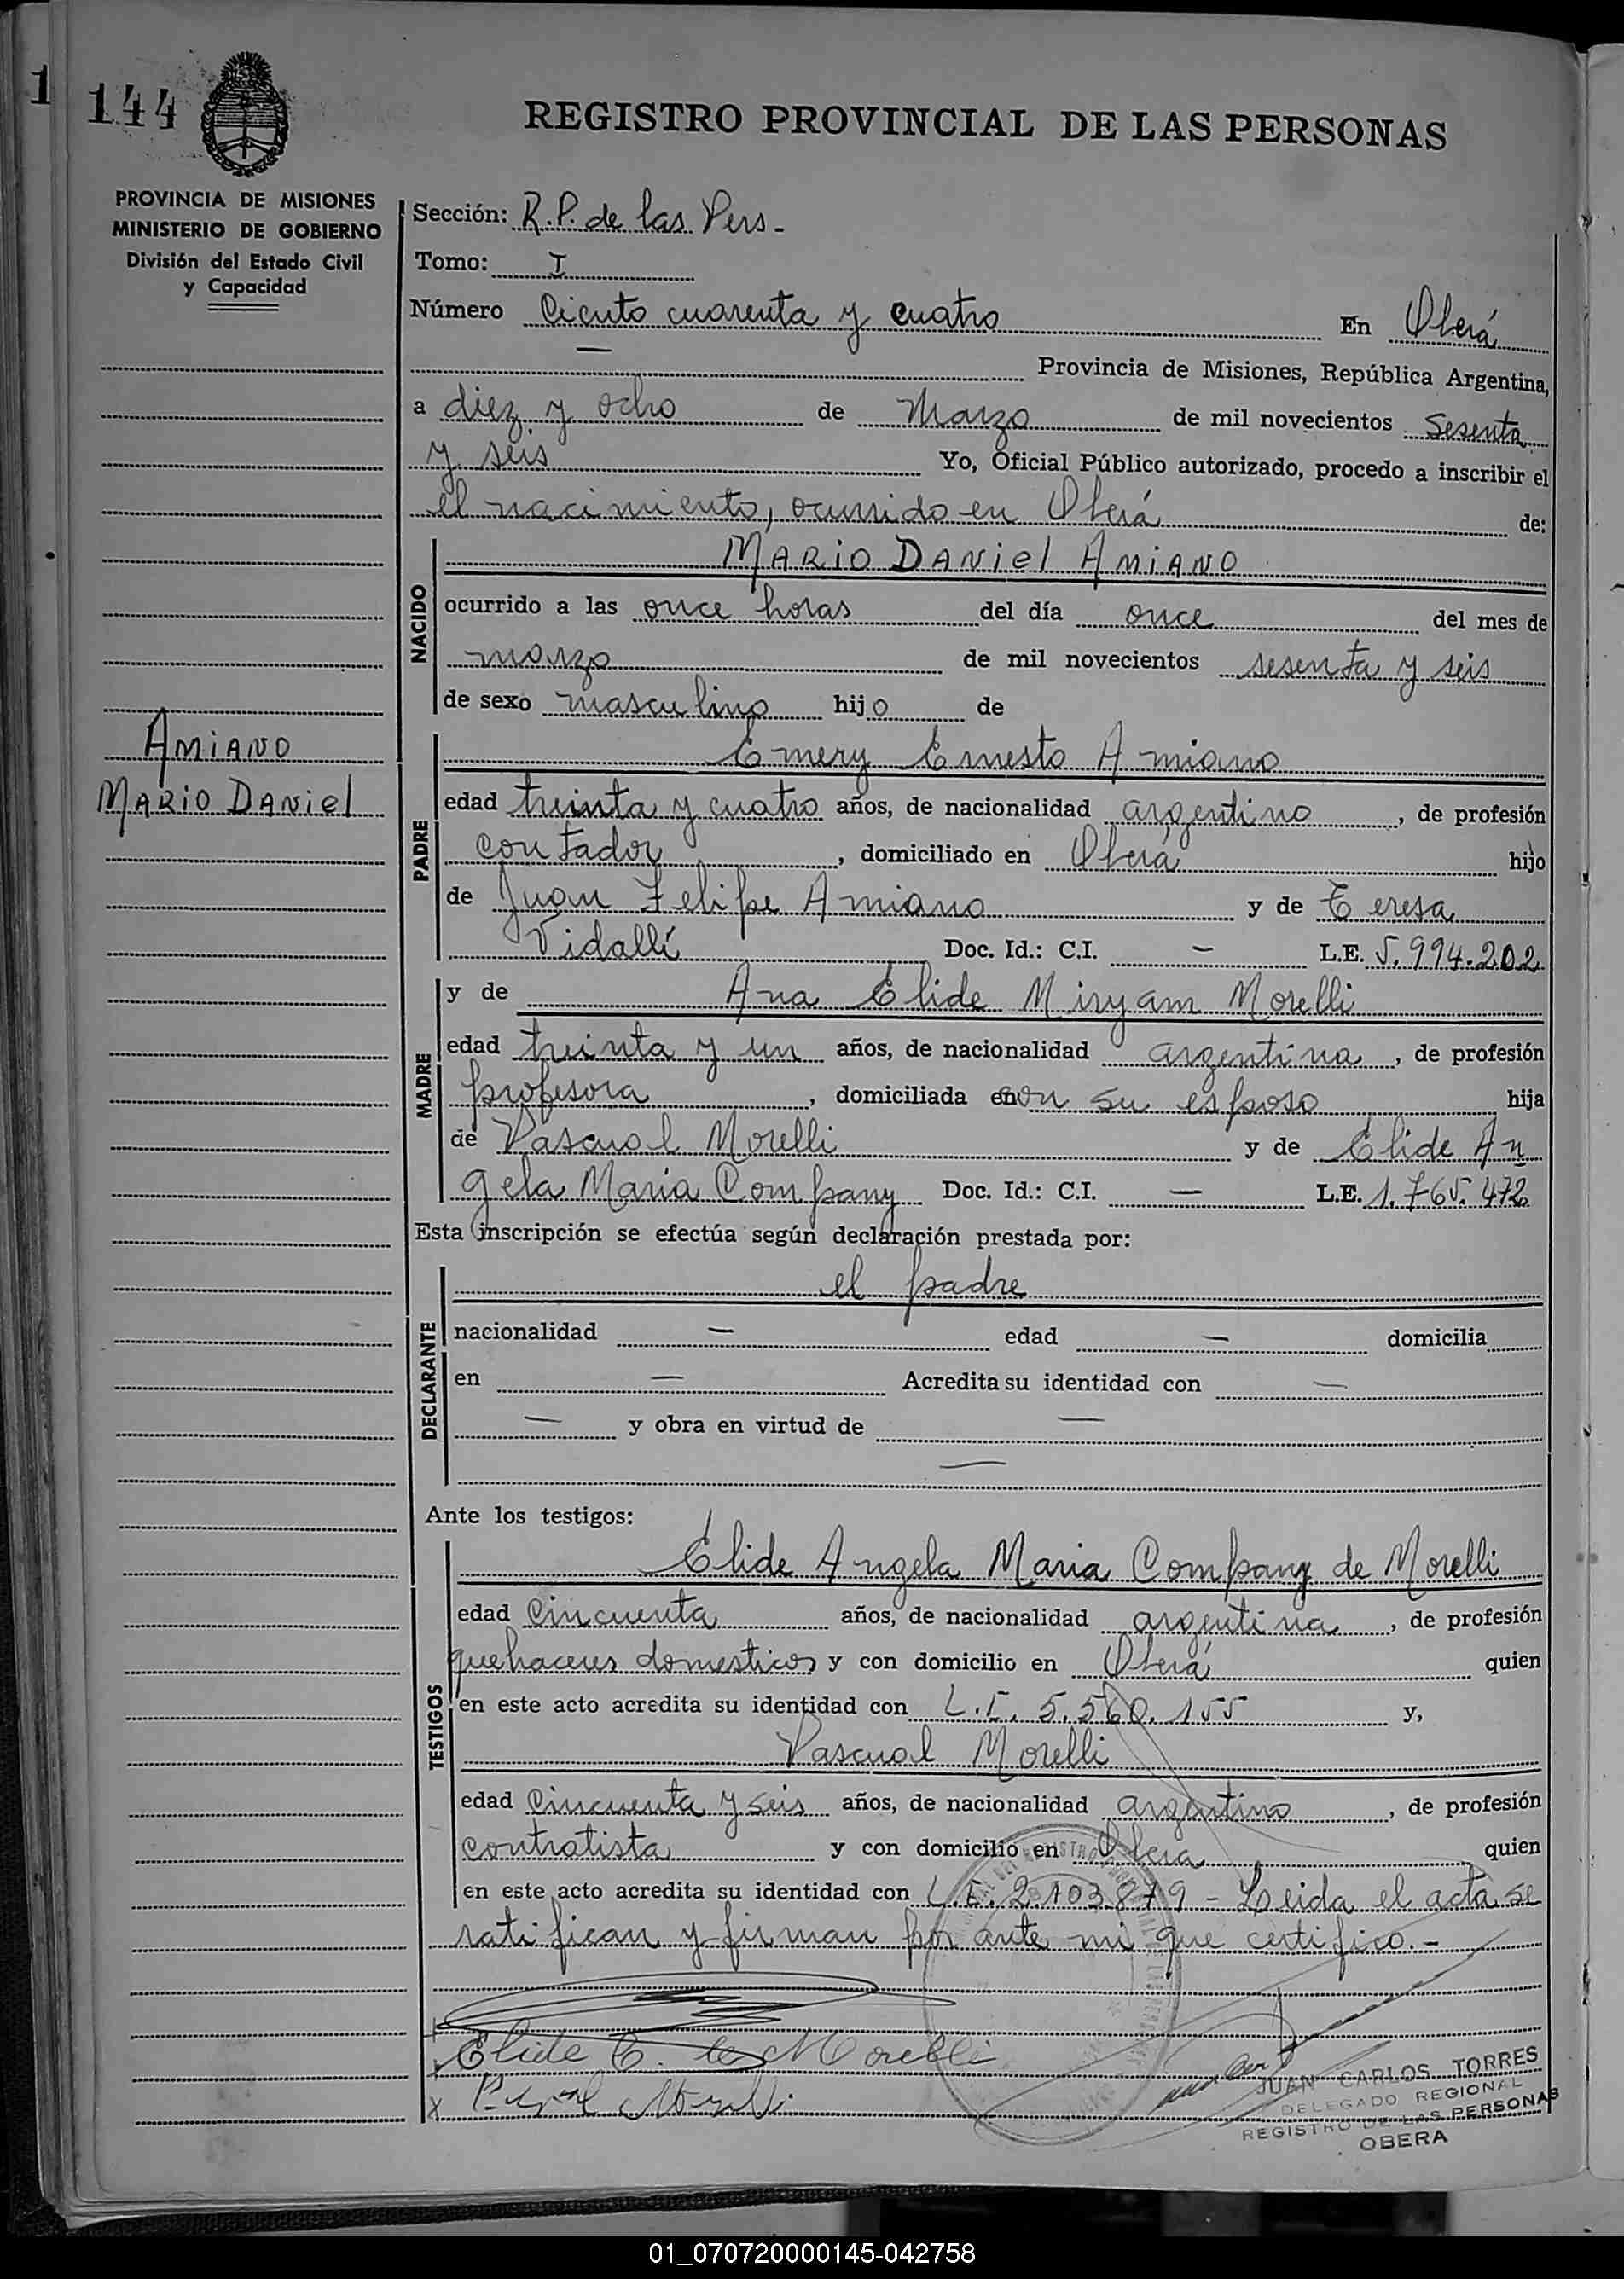 1 144
REGISTRO PROVINCIAL DE LAS PERSONAS
PROVINCIA DE MISIONES
MINISTERIO DE GOBIERNO
División del Estado Civil
y Capacidad
AMIANO
MARIO DANIEL
Sección: R.P. de las Pers-
Tomo: I
Número Ciento cuarenta y cuatro En Oberá
— Provincia de Misiones, República Argentina,
a diez y ocho de Marzo de mil novecientos Sesenta
y seis Yo, Oficial Público autorizado, procedo a inscribir el
el nacimiento, ocurrido en Oberá de:
NACIDO
MARIO DANIEL AMIANO
ocurrido a las once horas del día once del mes de
marzo de mil novecientos sesenta y seis
de sexo masculino hijo de
PADRE
Emery Ernesto Amiano
edad treinta y cuatro años, de nacionalidad argentino, de profesión
contador, domiciliado en Oberá hijo
de Juan Felipe Amiano y de Teresa
Vidallí Doc. Id.: C.I. — L.E. 5.994.202
MADRE
y de Ana Elide Miryam Morelli
edad treinta y un años, de nacionalidad argentina, de profesión
profesora, domiciliada con su esposo hija
de Pascual Morelli y de Elide An
gela Maria Company Doc. Id.: C.I. — L.E. 1.765.472
Esta inscripción se efectúa según declaración prestada por:
DECLARANTE
el padre
nacionalidad — edad — domicilia
en — Acredita su identidad con —
— y obra en virtud de —
—
Ante los testigos:
TESTIGOS
Elide Angela Maria Company de Morelli
edad Cincuenta años, de nacionalidad argentina, de profesión
quehaceres domesticos y con domicilio en Oberá quien
en este acto acredita su identidad con L.C. 5.560.155 y,
Pascual Morelli
edad Cincuenta y seis años, de nacionalidad argentino, de profesión
contratista y con domicilio en Obera quien
en este acto acredita su identidad con L.E. 2.103.879 - Leida el acta se
ratifican y firman por ante mi que certifico.-
Elide C. de Morelli
x Pascual Morelli
JUAN CARLOS TORRES
DELEGADO REGIONAL
REGISTRO DE LAS PERSONAS
OBERA
01_070720000145-042758